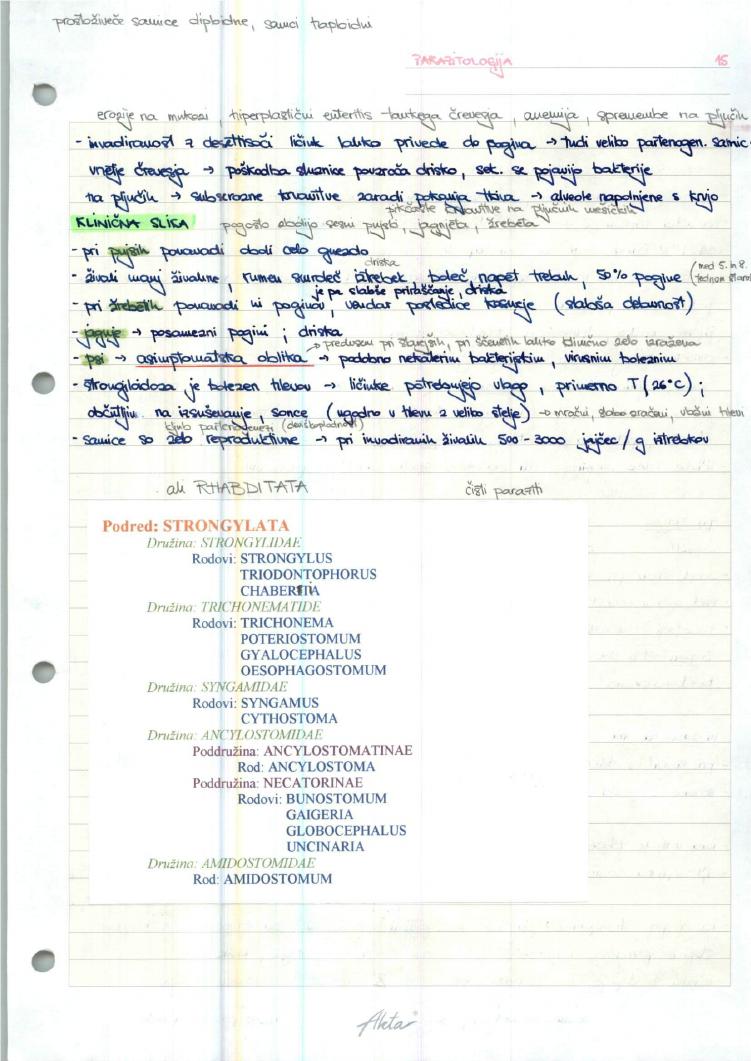 prostoživeče samice diploidne, samci haploidni
PARAZITOLOGIJA 15
erozije na mukozi, hiperplastični enteritis tankega črevesja, anemija, spremembe na pljučih
- invadiranost z desettisoči ličink lahko privede do pogina → tudi veliko partenogen. samic
vnetje črevesja → poškodba sluznice povzroča drisko, sek. se pojavijo bakterije
pikčaste krvavitve na pljučnih mešičkih
na pljučih → subserozne krvavitve zaradi pokanja tkiva → alveole napolnjene s krvjo
KLINIČNA SLIKA pogosto obolijo sesni pujski, jagnjeta, žrebeta
- pri pujskih ponavadi oboli celo gnezdo
driska
- živali manj živahne, rumen smrdeč iztrebek, boleč napet trebuh, 50% pogine (med 5. in 8. tednom starosti
je pa slabše priraščanje, driska
- pri žrebetih ponavadi ni poginov, vendar posledice kasneje (slabša delavnost)
- jagnje → posamezni pogini; driska
→ predvsem pri starejših, pri ščenetih lahko klinično zelo izražena
- psi → asimptomatska oblika → podobno nekaterim bakterijskim, virusnim boleznim
- strongiloidoza je bolezen hlevov → ličinke potrebujejo vlago, primerno T (26°C);
občutljive na izsuševanje, sonce (ugodno v hlevu z veliko stelje) → mračni, slabo zračeni, vlažni hlevi
kljub partenogenezi (deviškorodnost)
- samice so zelo reproduktivne → pri invadiranih živalih 500 - 3000 jajčec / g iztrebkov
ali RHABDITATA čisti paraziti
Podred: STRONGYLATA
Družina: STRONGYLIDAE
Rodovi: STRONGYLUS
TRIODONTOPHORUS
CHABERTIA
Družina: TRICHONEMATIDE
Rodovi: TRICHONEMA
POTERIOSTOMUM
GYALOCEPHALUS
OESOPHAGOSTOMUM
Družina: SYNGAMIDAE
Rodovi: SYNGAMUS
CYTHOSTOMA
Družina: ANCYLOSTOMIDAE
Poddružina: ANCYLOSTOMATINAE
Rod: ANCYLOSTOMA
Poddružina: NECATORINAE
Rodovi: BUNOSTOMUM
GAIGERIA
GLOBOCEPHALUS
UNCINARIA
Družina: AMIDOSTOMIDAE
Rod: AMIDOSTOMUM
Akta